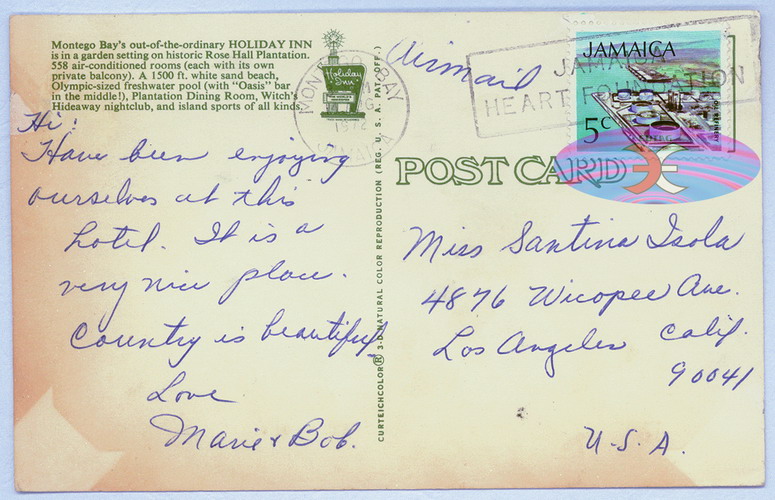 Montego Bay's out-of-the-ordinary HOLIDAY INN
is in a garden setting on historic Rose Hall Plantation.
558 air-conditioned rooms (each with its own
private balcony). A 1500 ft. white sand beach,
Olympic-sized freshwater pool (with "Oasis" bar
in the middle!), Plantation Dining Room, Witch's
Hideaway nightclub, and island sports of all kinds.
Holiday Inn
Hi!
Have been enjoying
ourselves at this
hotel. It is a
very nice place.
Country is beautiful,
Love
Marie & Bob.
CURTEICHCOLOR® 3-D NATURAL COLOR REPRODUCTION (REG. U.S.A. PAT. OFF.)
Airmail
MONTEGO BAY
1972
JAMAICA
JAMAICA
HEART FOUNDATION
JAMAICA
5c
OIL REFINERY
POST CARD
Miss Santina Isola
4876 Wicopee Ave.
Los Angeles Calif.
90041
U.S.A.